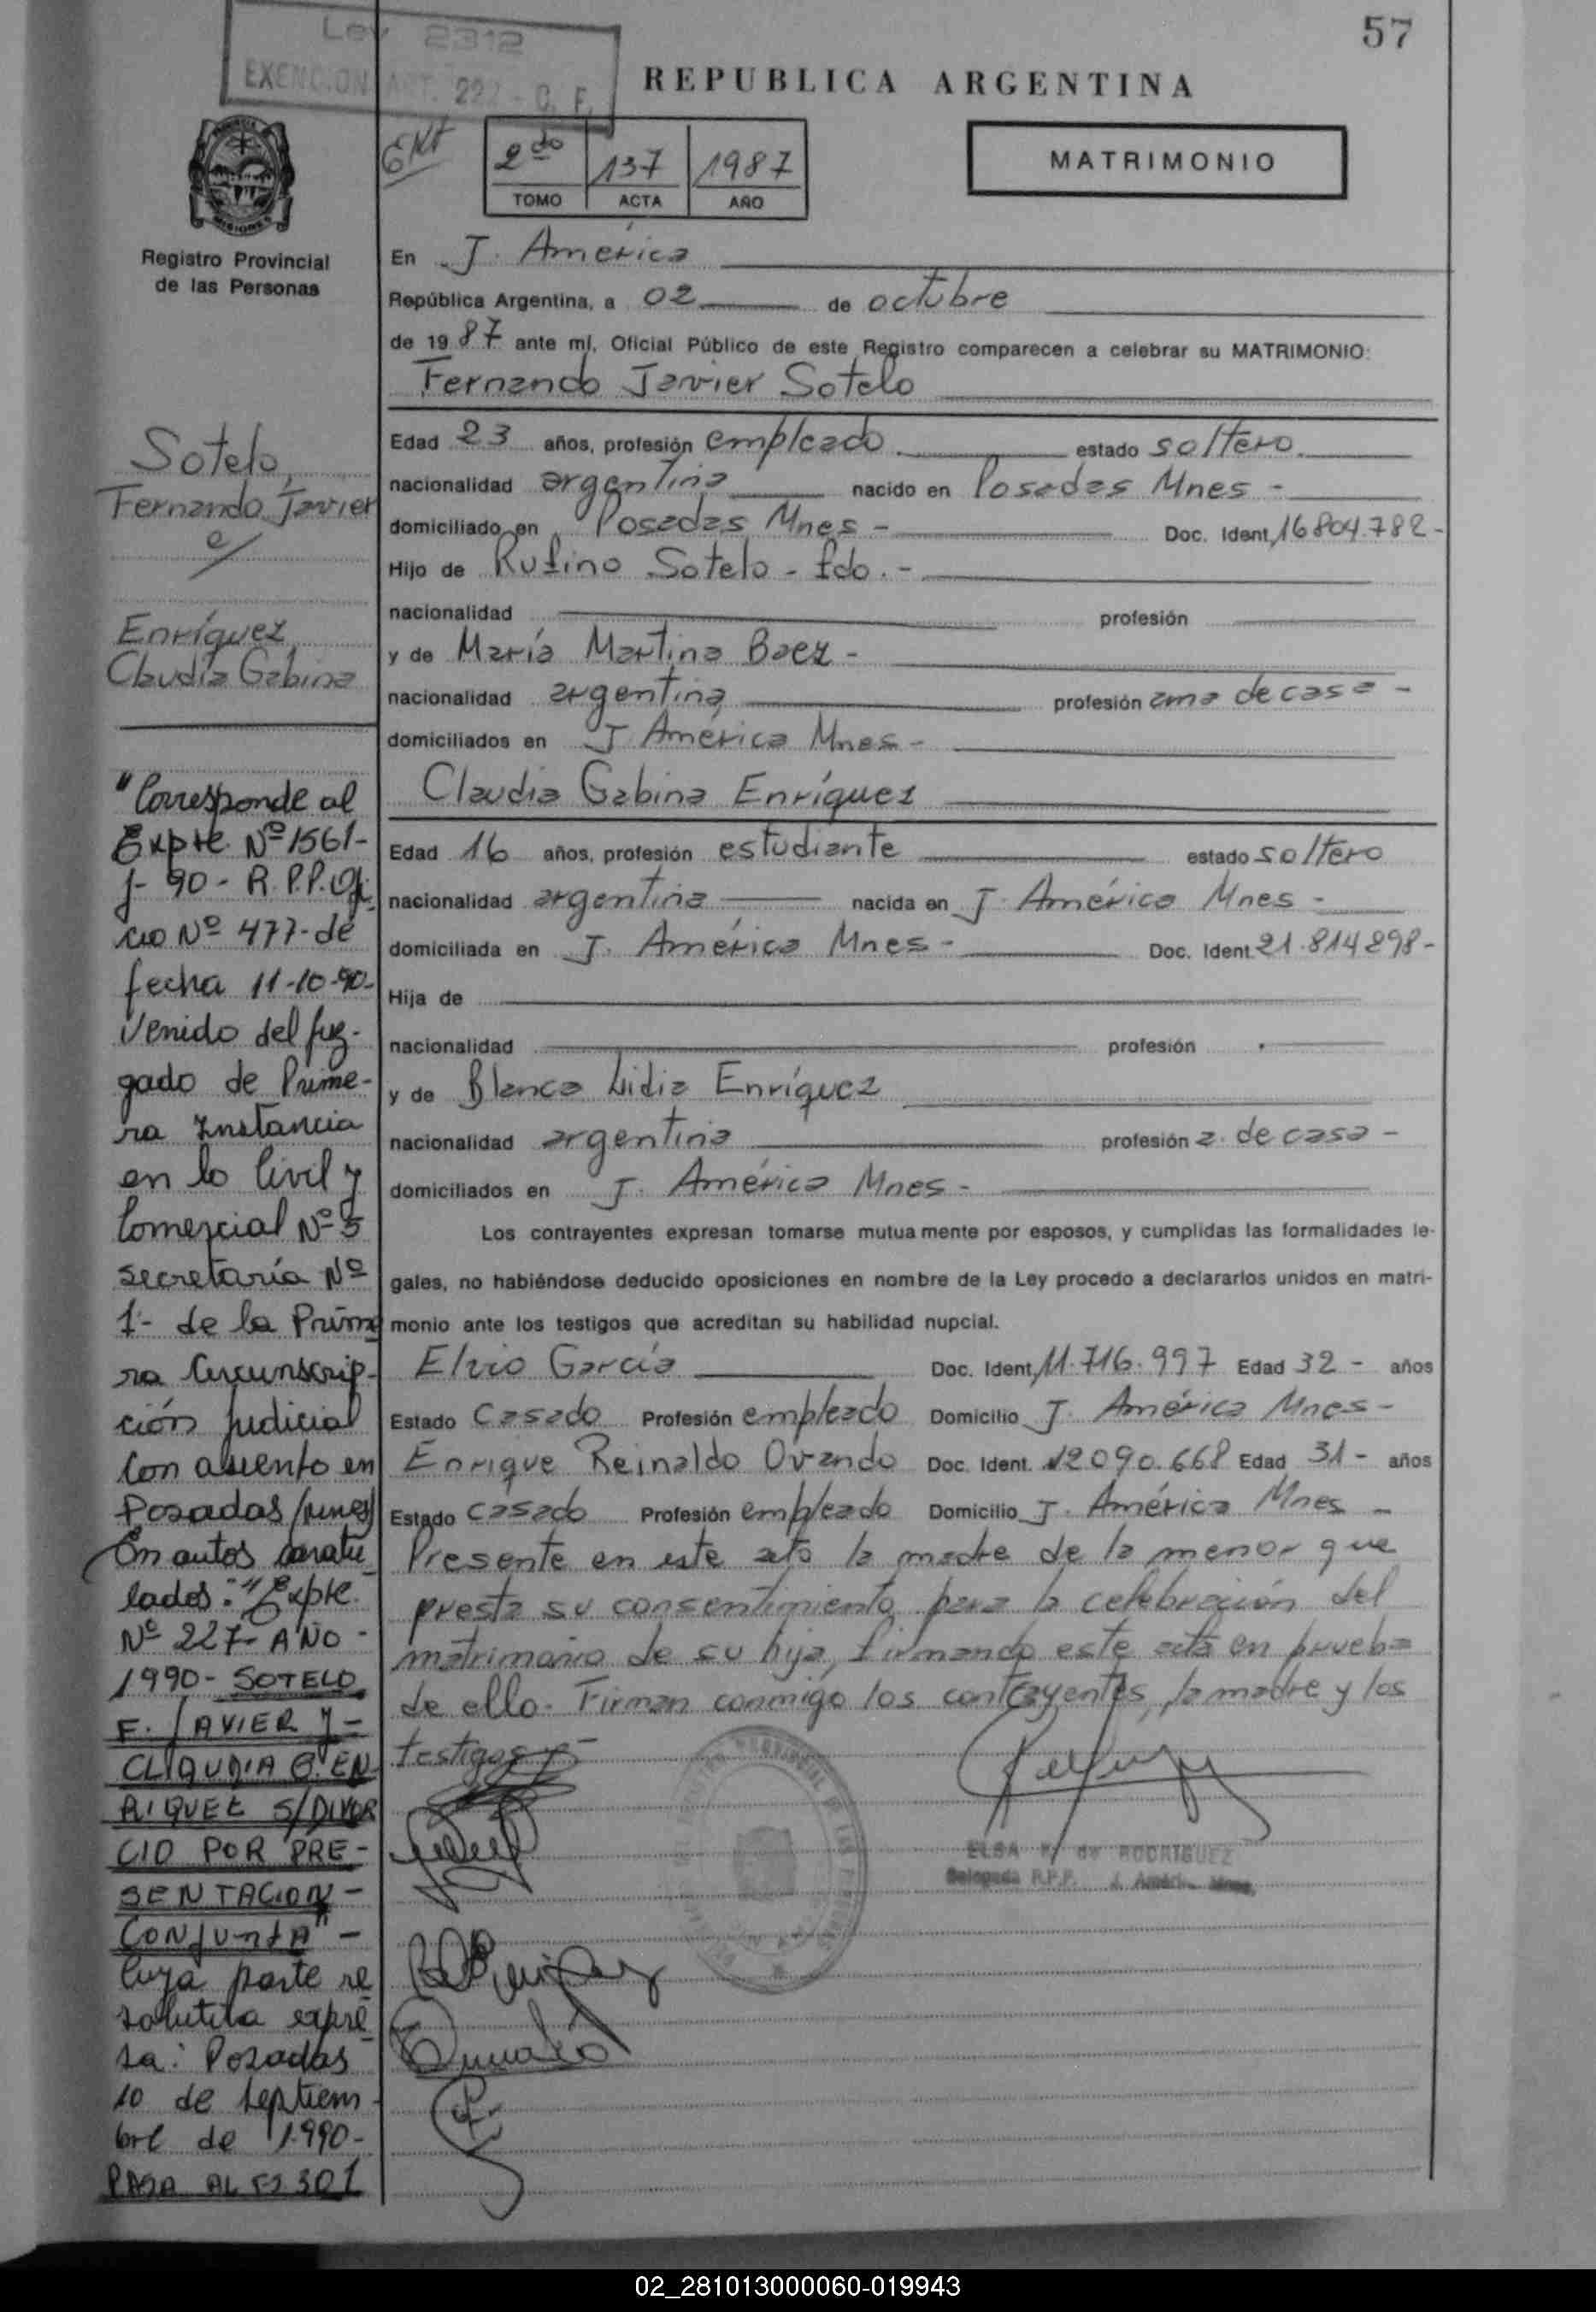 57
Ley 2312
EXENCION ART. 222 - C. F.
REPUBLICA ARGENTINA
2do 137 1987
TOMO ACTA AÑO
MATRIMONIO
Registro Provincial
de las Personas
En J. América
República Argentina, a 02 de octubre
de 1987 ante mí, Oficial Público de este Registro comparecen a celebrar su MATRIMONIO:
Fernando Javier Sotelo
Edad 23 años, profesión empleado estado soltero
nacionalidad argentina nacido en Posadas Mnes -
domiciliado en Posadas Mnes - Doc. Ident. 16804.782-
Hijo de Rufino Sotelo - fdo. -
nacionalidad profesión
y de María Martina Baez -
nacionalidad argentina profesión ama de casa -
domiciliados en J. América Mnes -
Claudia Gabina Enríquez
Edad 16 años, profesión estudiante estado soltero
nacionalidad argentina nacida en J. América Mnes -
domiciliada en J. América Mnes - Doc. Ident. 21.814.898-
Hija de
nacionalidad profesión
y de Blanca Lidia Enríquez
nacionalidad argentina profesión a. de casa -
domiciliados en J. América Mnes -
Los contrayentes expresan tomarse mutuamente por esposos, y cumplidas las formalidades le-
gales, no habiéndose deducido oposiciones en nombre de la Ley procedo a declararlos unidos en matri-
monio ante los testigos que acreditan su habilidad nupcial.
Elvio García Doc. Ident. 11.716.997 Edad 32 - años
Estado Casado Profesión empleado Domicilio J. América Mnes -
Enrique Reinaldo Ovando Doc. Ident. 12090.668 Edad 31 - años
Estado casado Profesión empleado Domicilio J. América Mnes -
Presente en este acto la madre de la menor que
presta su consentimiento para la celebración del
matrimonio de su hija, firmando este acta en prueba
de ello. Firman conmigo los contrayentes, la madre y los
testigos.-
ELSA de RODRIGUEZ
Delegada R.P.P. J. América Mnes.
Sotelo,
Fernando Javier
c/
Enríquez
Claudia Gabina
"Corresponde al
Expte. Nº 1561-
J- 90- R.P.P. Ofi-
cio Nº 477- de
fecha 11-10-90-
venido del Juz-
gado de Prime-
ra Instancia
en lo Civil y
Comercial Nº 5
secretaría Nº
1- de la Prime
ra Circunscrip-
ción Judicial
con asiento en
Posadas (mnes)
En autos caratu
lados: "Expte.
Nº 227- AÑO -
1990- SOTELO
F. JAVIER y -
CLAUDIA G. EN-
RIQUEZ S/DIVOR
CIO POR PRE-
SENTACION -
CONJUNTA" -
Cuya parte re
solutiva expre
sa: Posadas
10 de septiem-
bre de 1.990-
PASA AL Fº 301
02_281013000060-019943